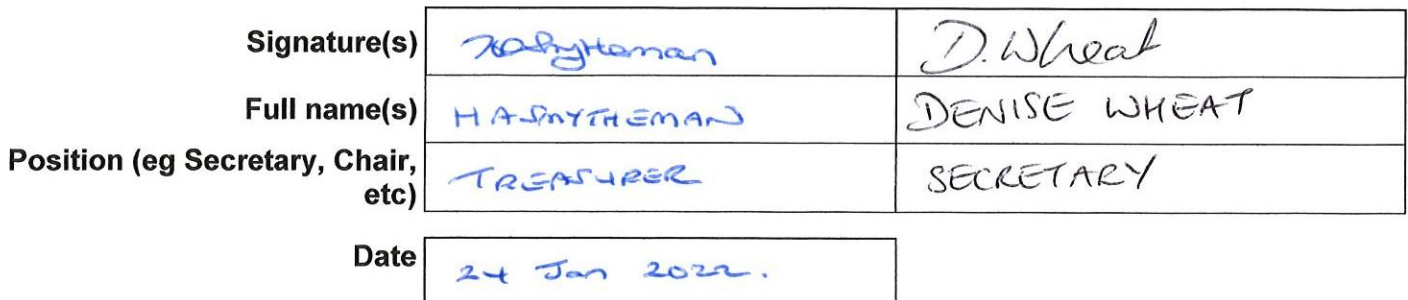 Signature(s) D. Wheat
Full name(s) H A SMYTHEMAN DENISE WHEAT
Position (eg Secretary, Chair,
etc) TREASURER SECRETARY
Date 24 Jan 2022.